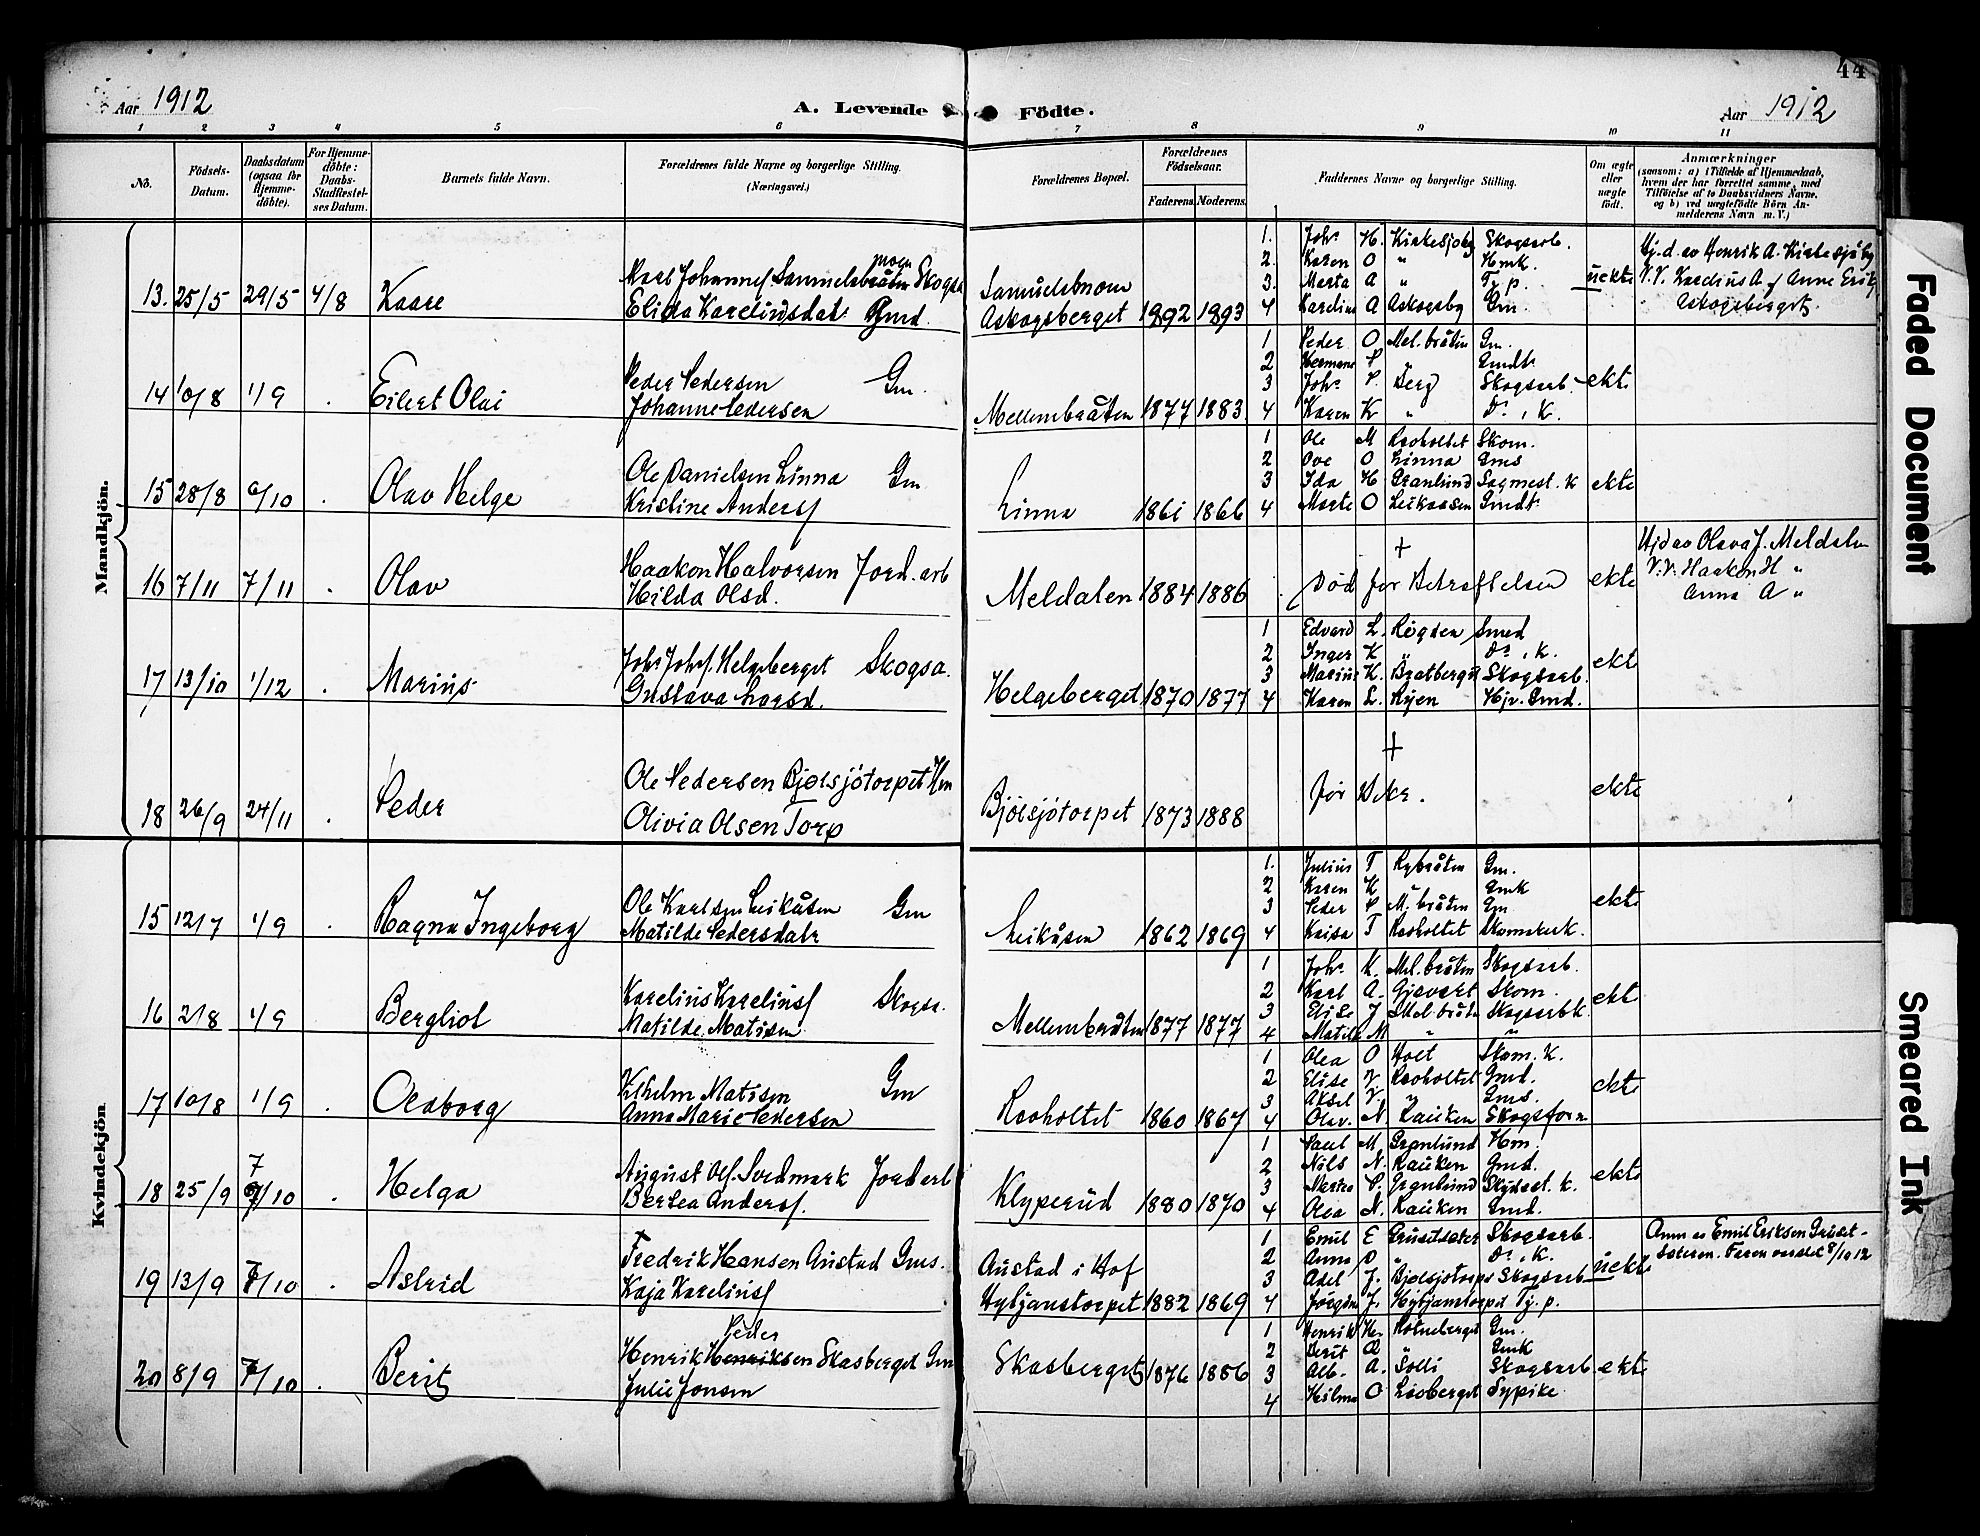 44
Aar 1912
A. Levende Födte.
Aar 1912
1 2 3 4 5 6 7 8 9 10 11
No.
Födsels-
Datum.
Daabsdatum
(ogsaa for
Hjemme-
döbte).
For Hjemme-
döbte:
Daabs-
Stadfæstel-
ses Datum.
Barnets fulde Navn.
Forældrenes fulde Navne og borgerlige Stilling.
(Næringsvei.)
Forældrenes Bopæl.
Forældrenes
Födselsaar.
Faderens. Moderens.
Faddernes Navne og borgerlige Stilling.
Om ægte
eller
uægte
födt.
Anmærkninger
(saasom: a) i Tilfælde af Hjemmedaab,
hvem der har forrettet samme, med
Tilföielse af to Daabsvidners Navne,
og b) ved uægtefödte Börn An-
melderens Navn m. V.)
Mandkjön.
13. 25/5 29/5 4/8 Kaare
Elida Karelinsdat.
Askogsberget 1892 1893
1. Joh. H. Kirkesjøby Skogsarb.
2. Karen O " Hmk.
3. Marta A " Tj. p.
4 Karelius A Askogsby Gm.
uekte
Hj. d. av Henrik A. Kirkesjøby
V.V. Karelius A og Anne Erik
Askogsberget
14 10/8 1/9 . Eilert Olai
Peder Pedersen Gm.
Johanne Pedersen
Mellembråten 1877 1883
1 Peder O Mel.bråten Gm.
2 Hermann P " Gmdt.
3 Joh. P. Berg Skogsarb.
4 Karen K " Do. , K.
ekte
15 28/8 6/10 . Olav Helge
Ole Danielsen Linna Gm
Kristine Anders
Linna 1861 1866
1 Ole M Raaholtet Skom.
2 Ove O Linna Gms
3 Ida H Granlund Sagmest. K
4 Marte O Leikaasen Gmdt.
ekte
16 7/11 7/11 . Olav
Haakon Halvorsen Jord. arb
Hilda Olsd.
Meldalen 1884 1886
+
Død før Bekræftelsen
ekte
Hjd av Olava J. Meldalen
V.V. Haakon H "
Anna A "
17 13/10 1/12 . Marius
Helgeberget Skogsa.
Gustava Larsd.
Helgeberget 1870 1877
1 Edvard L. Røgden Smed
2 Inger K " Do. , K.
3 Marius K. Bratberget Skogsarb.
4 Karen L. Ryen Hjv. Gmd.
ekte
18 26/9 24/11 . Peder
Ole Pedersen Bjølsjötorpet Hm
Olivia Olsen Torp
Bjölsjötorpet 1873 1888
+
før Bekr.
ekte
Kvindekjön
15 12/7 1/9 . Ragna Ingeborg
Ole Karlsen Leikåsen Gm
Matilde Pedersdatr
Leikåsen 1862 1869
1. Julius T Rybråten Gm.
2 Karen K Gmk
3 Peder P M. bråten Gm
4 Kaisa T Raaholtet
ekte
16 2/8 1/9 Bergliot
Karelius Karelius Skogsa.
Matilde Matisen
Mellembråten 1877 1877
1 Joh. K. Mel. bråten Skogsarb.
2 Karl A. Skom.
3 Elise J Mel bråten Skogsarbk.
4 Matilde M " "
ekte
17 10/8 1/9 . Olaborg
Vilhelm Matisen Gm
Anna Marie Pedersen
Raaholtet 1860 1867
1 Olea O Holt Skom. K.
2 Elise V. Raaholtet Gmd.
3 Aksel V. " Gms.
4 Olav. N. Rauken Skogsform
ekte
18 25/9 7/10 . Helga
August Ols. Svedmark Jordarb
Bertea Anders.
Klyperud 1880 1870
1 Paul M Granlund Hm.
2 Nils N. Rauken Gmd.
3 Marta P. Granlund Skydsst. k.
4 Olea N. Rauken Gmd.
ekte
19 13/9 7/10 . Astrid
Fredrik Hansen Austad Gms.
Kaja Karelius
Austad i Hof
Hytjanstorpet 1882 1869
1 Emil E Grusetsæter Skogsarb.
2 Anna O " Do. , K.
3 Adel J. Bjølsjötorpet Skogsarb
4 Jørgine J. Hytjanstorpet Tj. p.
uekte
Anm av Emil Eriksen Gruset-
sæteren. Faren varslet 8/10 12
20 8/9 7/10 . Berit
Peder
Henrik Henriksen Skasberget Gm
Julie Jonsen
Skasberget 1876 1886
1 Henrik H. Rotneberget Gm.
2 Berit O " Gmk
3 Alb. A. Solli Skogsarb
4 Hilma O Lisberget Sypike
ekte
Faded Document
Smeared Ink